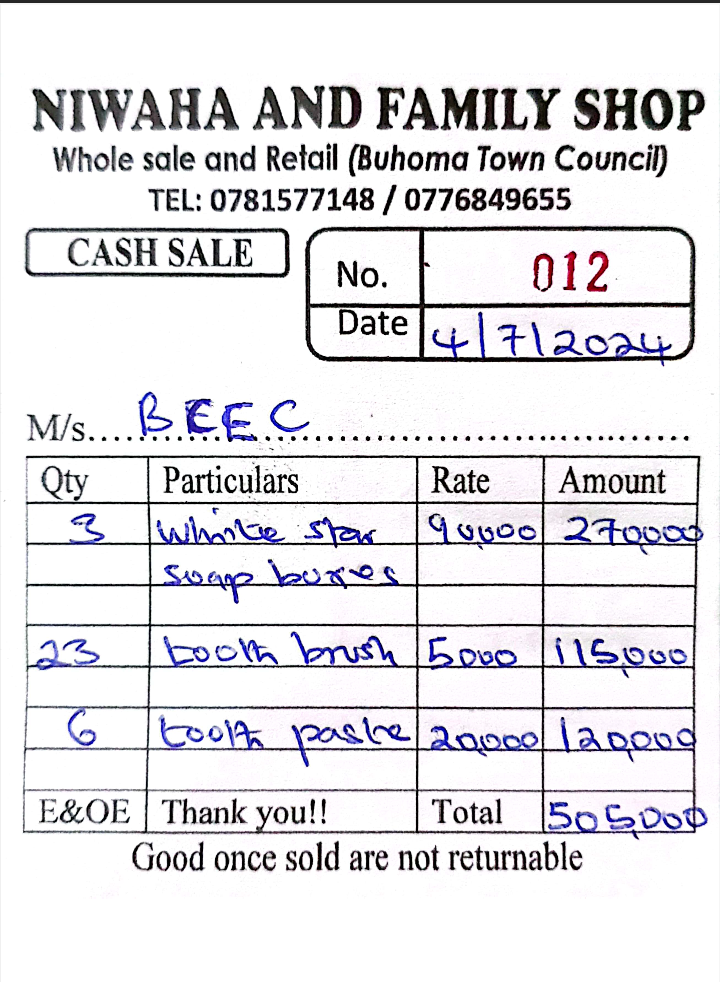 NIWAHA AND FAMILY SHOP
Whole sale and Retail (Buhoma Town Council)
TEL: 0781577148 / 0776849655
CASH SALE
No. 012
Date 4/7/2024
M/s. BEEC
Qty Particulars Rate Amount
3 White star 90,000 270,000
soap boxes
23 tooth brush 5000 115,000
6 tooth paste 20,000 120,000
E&OE Thank you!! Total 505,000
Good once sold are not returnable